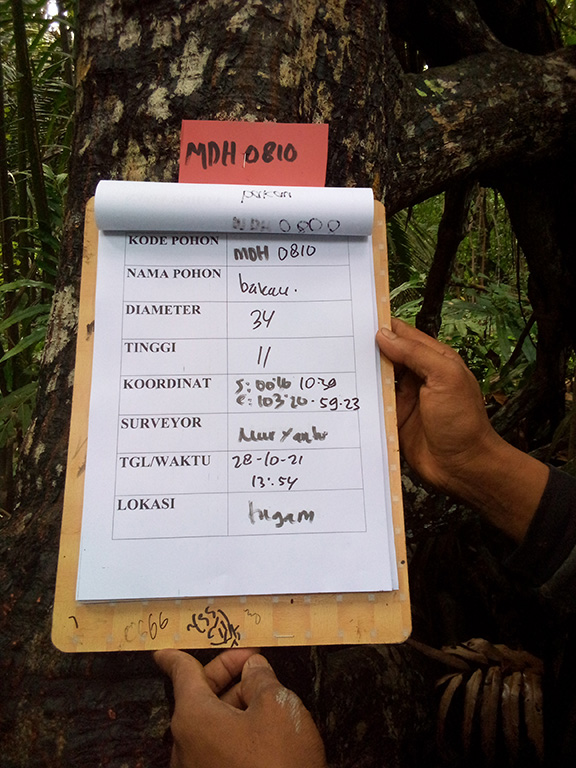 MDH 0810
KODE POHON MDH 0810
NAMA POHON bakau.
DIAMETER 34
TINGGI 11
KOORDINAT S: 0016 10.30
E: 103'20-59-23
SURVEYOR Nur Yanto
TGL/WAKTU 28-10-21
13:54
LOKASI